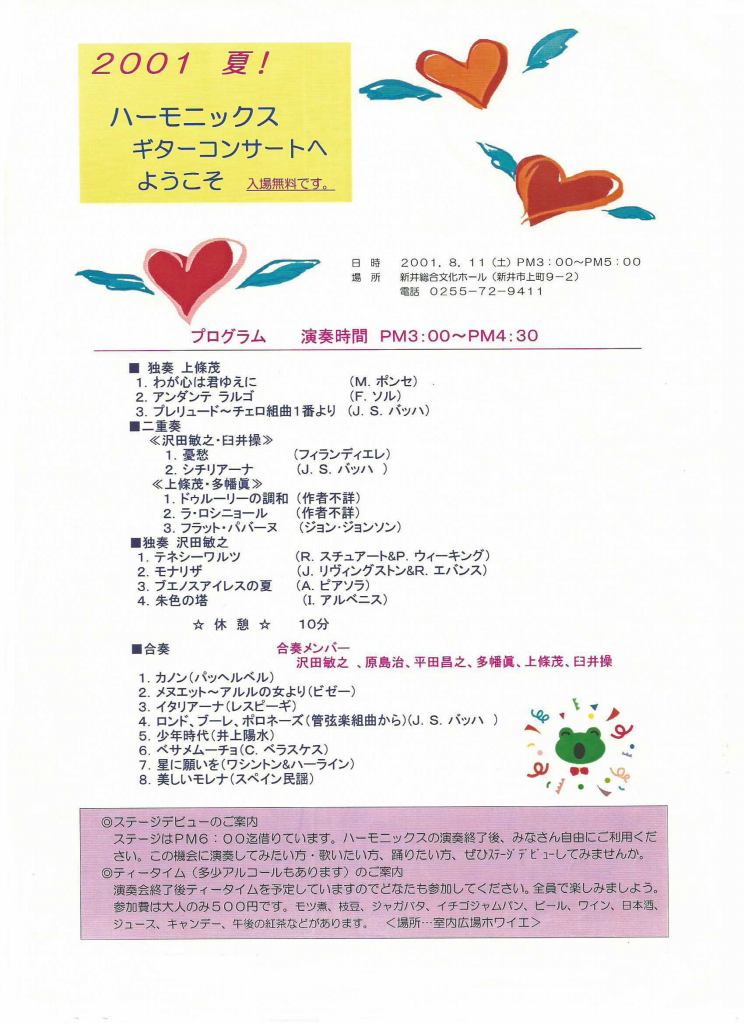 2001 夏！
ハーモニックス
ギターコンサートへ
ようこそ 入場無料です。
日 時 2001．8．11（土）PM3：00～PM5：00
場 所 新井総合文化ホール（新井市上町9－2）
電話 0255－72－9411
プログラム 演奏時間 PM3：00～PM4：30
■ 独奏 上條茂
1．わが心は君ゆえに （M．ポンセ）
2．アンダンテ ラルゴ （F．ソル）
3．プレリュード～チェロ組曲1番より （J．S．バッハ）
■二重奏
≪沢田敏之・臼井操≫
1．憂愁 （フィランディエレ）
2．シチリアーナ （J．S．バッハ ）
≪上條茂・多幡眞≫
1．ドゥルーリーの調和 （作者不詳）
2．ラ・ロシニョール （作者不詳）
3．フラット・パバーヌ （ジョン・ジョンソン）
■独奏 沢田敏之
1．テネシーワルツ （R．スチュアート&P．ウィーキング）
2．モナリザ （J．リヴィングストン&R．エバンス）
3．ブエノスアイレスの夏 （A．ピアソラ）
4．朱色の塔 （I．アルベニス）
☆ 休 憩 ☆ 10分
■合奏 合奏メンバー
沢田敏之 、原島治、平田昌之、多幡眞、上條茂、臼井操
1．カノン（パッヘルベル）
2．メヌエット～アルルの女より（ビゼー）
3．イタリアーナ（レスピーギ）
4．ロンド、ブーレ、ポロネーズ（管弦楽組曲から）（J．S．バッハ ）
5．少年時代（井上陽水）
6．ベサメムーチョ（C．ベラスケス）
7．星に願いを（ワシントン&ハーライン）
8．美しいモレナ（スペイン民謡）
◎ステージデビューのご案内
ステージはPM6：00迄借りています。ハーモニックスの演奏終了後、みなさん自由にご利用くだ
さい。この機会に演奏してみたい方・歌いたい方、踊りたい方、ぜひｽﾃｰｼﾞﾃﾞﾋﾞｭｰしてみませんか。
◎ティータイム（多少アルコールもあります）のご案内
演奏会終了後ティータイムを予定していますのでどなたも参加してください。全員で楽しみましょう。
参加費は大人のみ500円です。モツ煮、枝豆、ジャガバタ、イチゴジャムパン、ビール、ワイン、日本酒、
ジュース、キャンデー、午後の紅茶などがあります。 ＜場所…室内広場ホワイエ＞